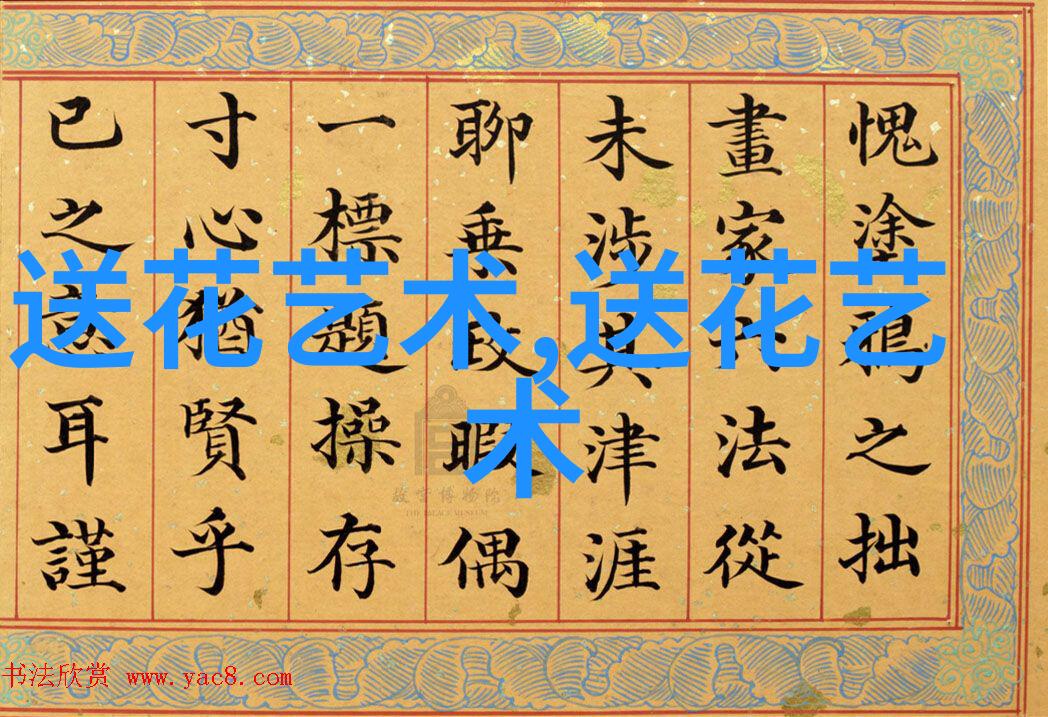 愧塗鴉之拙
畫家六法從
未涉其津涯
聊乗政暇偶
一標題操存
寸心猶賢乎
已之意耳謹
送花艺术,送花艺
术
故宫博物院
THE PALACE MUSEUM
书法欣赏 www.yac8.com